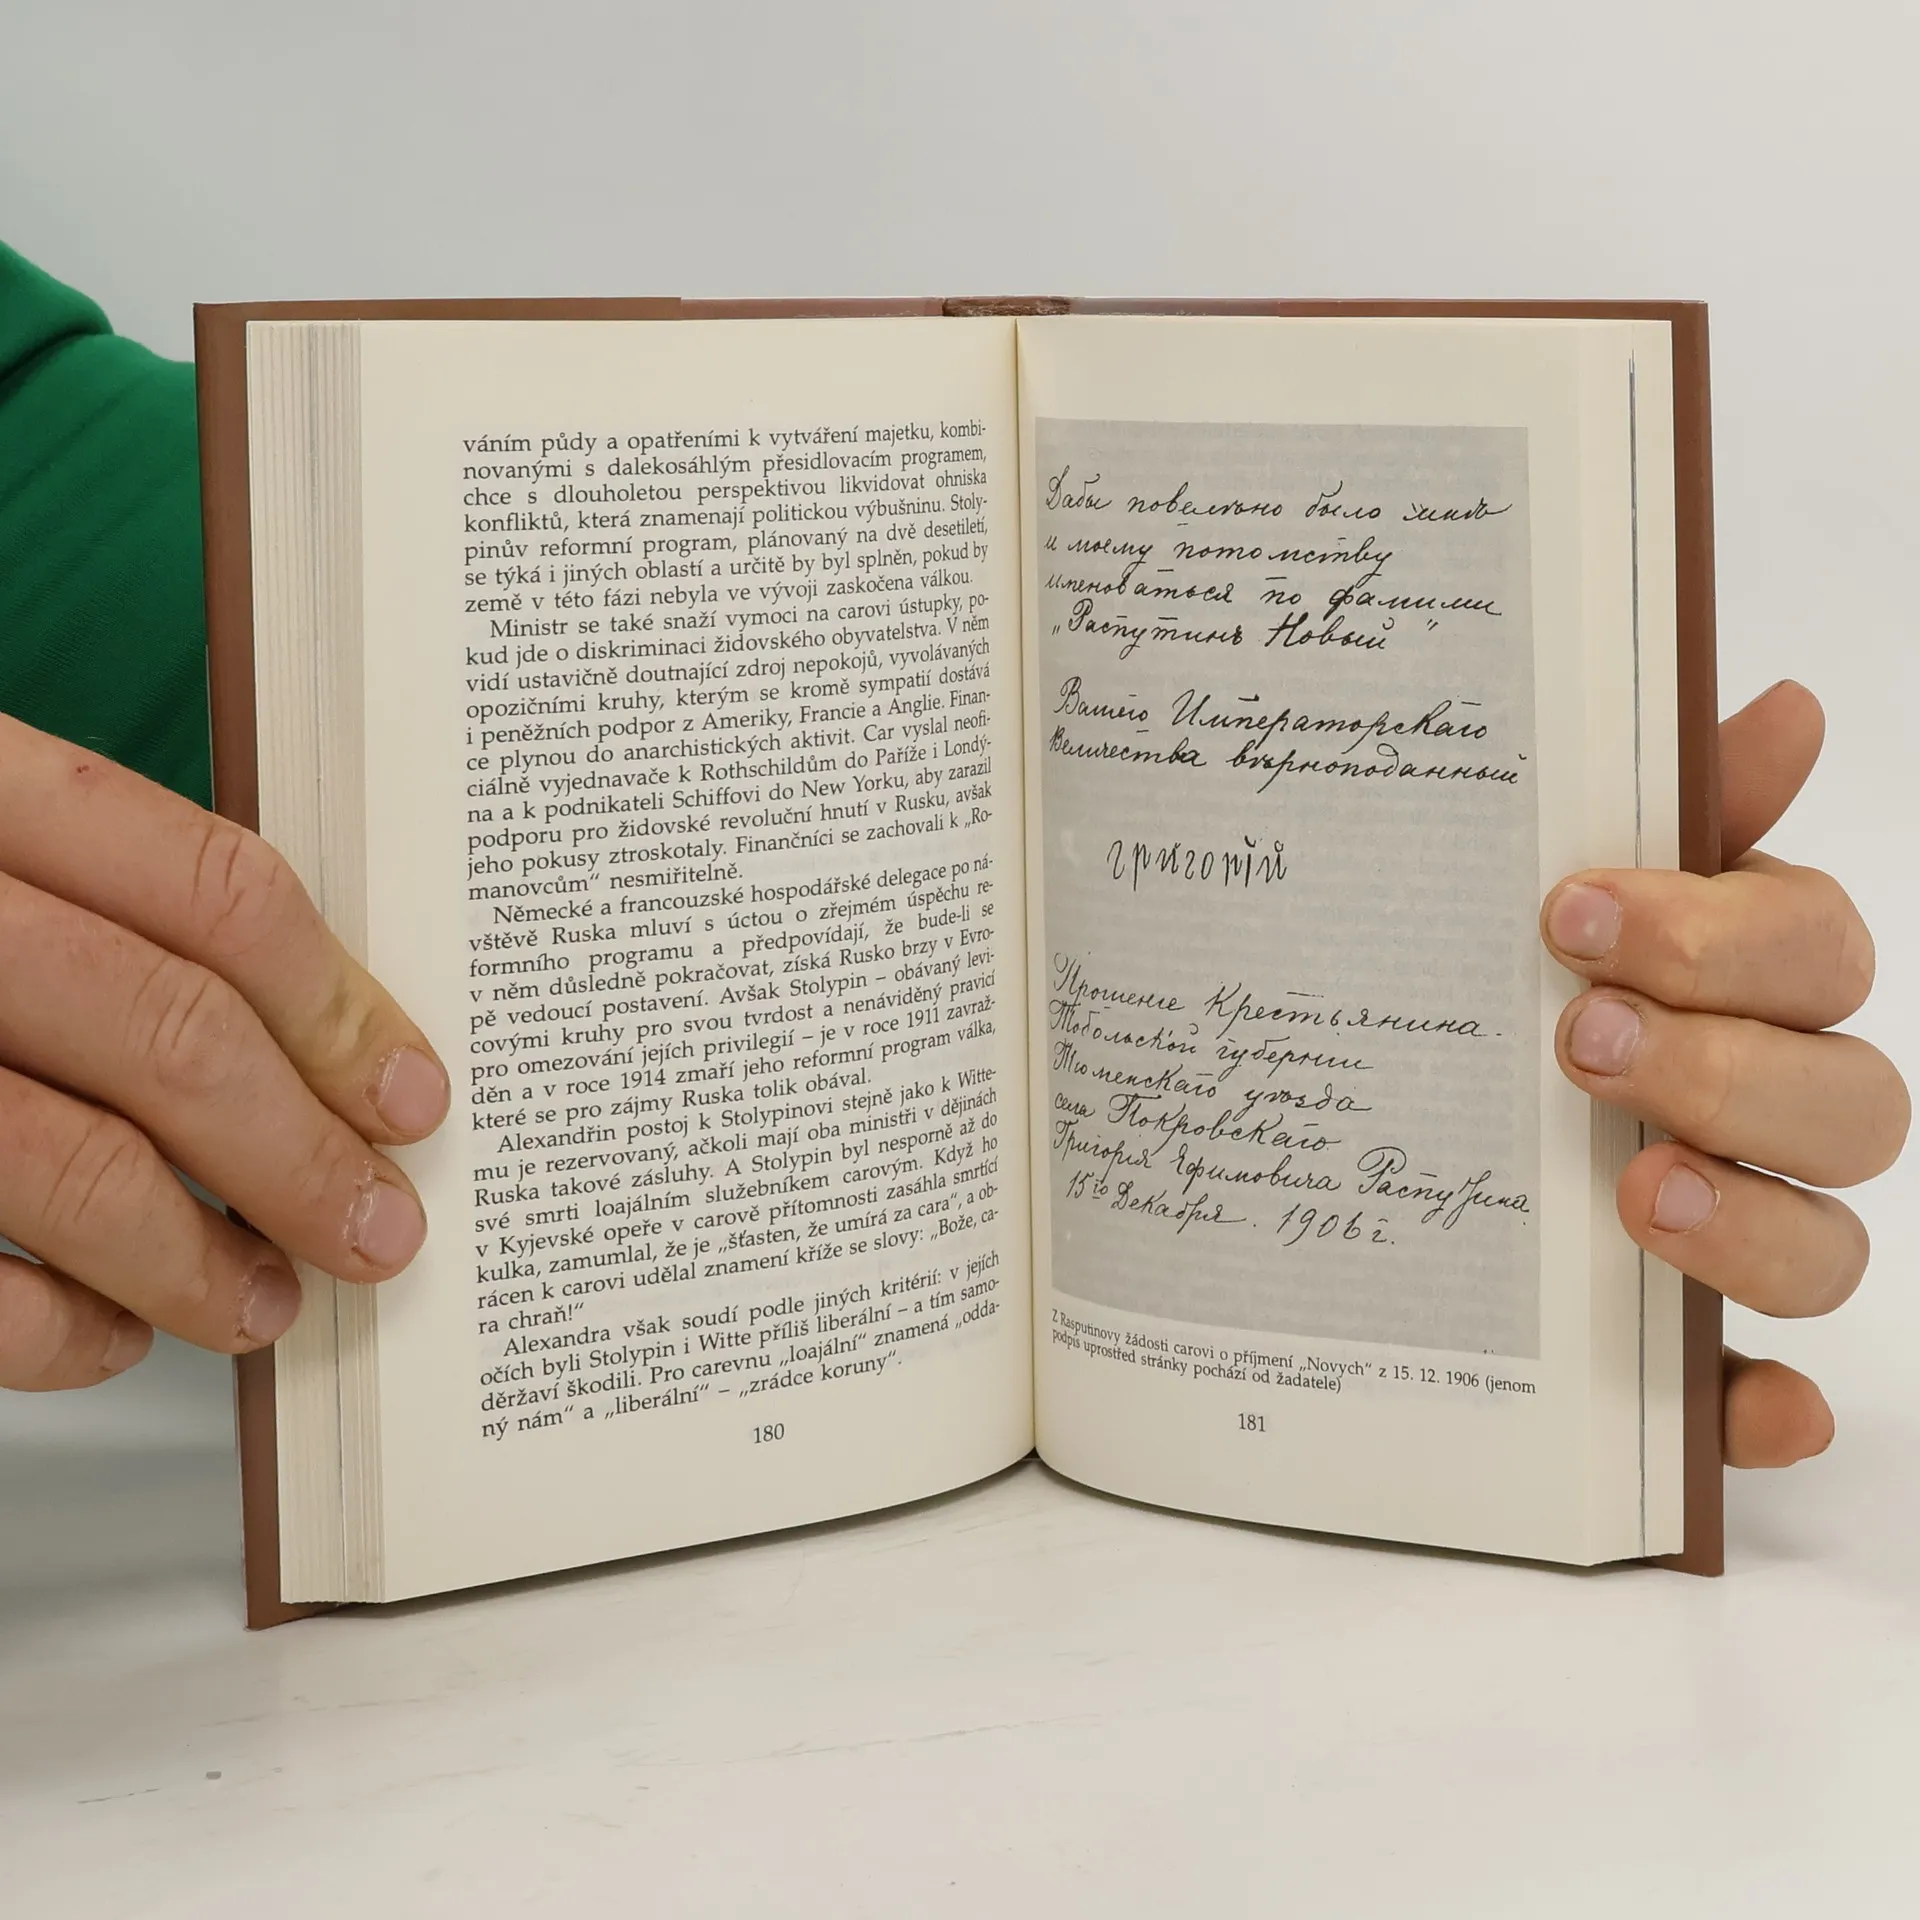 váním půdy a opatřeními k vytváření majetku, kombi-
novanými s dalekosáhlým přesidlovacím programem,
chce s dlouholetou perspektivou likvidovat ohniska
konfliktů, která znamenají politickou výbušninu. Stoly-
pinův reformní program, plánovaný na dvě desetiletí,
se týká i jiných oblastí a určitě by byl splněn, pokud by
země v této fázi nebyla ve vývoji zaskočena válkou.
Ministr se také snaží vymoci na carovi ústupky, po-
kud jde o diskriminaci židovského obyvatelstva. V něm
vidí ustavičně doutnající zdroj nepokojů, vyvolávaných
opozičními kruhy, kterým se kromě sympatií dostává
i peněžních podpor z Ameriky, Francie a Anglie. Finan-
ce plynou do anarchistických aktivit. Car vyslal neofi-
ciálně vyjednavače k Rothschildům do Paříže i Londý-
na a k podnikateli Schiffovi do New Yorku, aby zarazil
podporu pro židovské revoluční hnutí v Rusku, avšak
jeho pokusy ztroskotaly. Finančníci se zachovali k „Ro-
manovcům“ nesmiřitelně.
Německé a francouzské hospodářské delegace po ná-
vštěvě Ruska mluví s úctou o zřejmém úspěchu re-
formního programu a předpovídají, že bude-li se
v něm důsledně pokračovat, získá Rusko brzy v Evro-
pě vedoucí postavení. Avšak Stolypin – obávaný levi-
covými kruhy pro svou tvrdost a nenáviděný pravicí
pro omezování jejích privilegií – je v roce 1911 zavraž-
děn a v roce 1914 zmaří jeho reformní program válka,
které se pro zájmy Ruska tolik obával.
Alexandřin postoj k Stolypinovi stejně jako k Witte-
mu je rezervovaný, ačkoli mají oba ministři v dějinách
Ruska takové zásluhy. A Stolypin byl nesporně až do
své smrti loajálním služebníkem carovým. Když ho
v Kyjevské opeře v carově přítomnosti zasáhla smrtící
kulka, zamumlal, že je „šťasten, že umírá za cara“, a ob-
rácen k carovi udělal znamení kříže se slovy: „Bože, ca-
ra chraň!“
Alexandra však soudí podle jiných kritérií: v jejích
očích byli Stolypin i Witte příliš liberální – a tím samo-
děržaví škodili. Pro carevnu „loajální“ znamená „odda-
ný nám“ a „liberální“ – „zrádce koruny“.
180
Дабы повелѣно было мнѣ
и моему потомству
именоваться по фамилии
„Распутинъ Новый“
Вашего Императорскаго
Величества вѣрноподанный
григорій
Прошенiе Крестьянина
Тобольской губернiи
Тюменскаго уѣзда
села Покровскаго
Григорiя Ефимовича Распутина
15го Декабря. 1906 г.
Z Rasputinovy žádosti carovi o příjmení „Novych“ z 15. 12. 1906 (jenom
podpis uprostřed stránky pochází od žadatele)
181